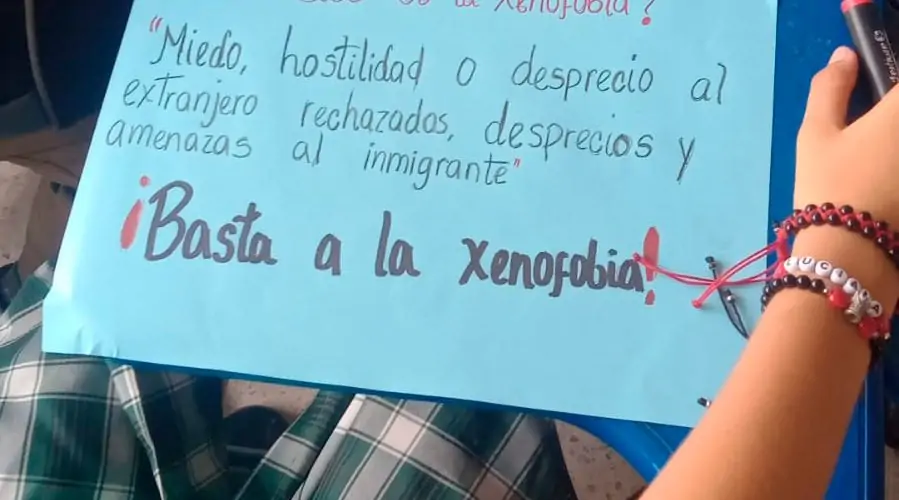 la xenofobia?
"Miedo, hostilidad o desprecio al
extranjero rechazados, desprecios y
amenazas al inmigrante"
¡Basta a la xenofobia!
LUCIA